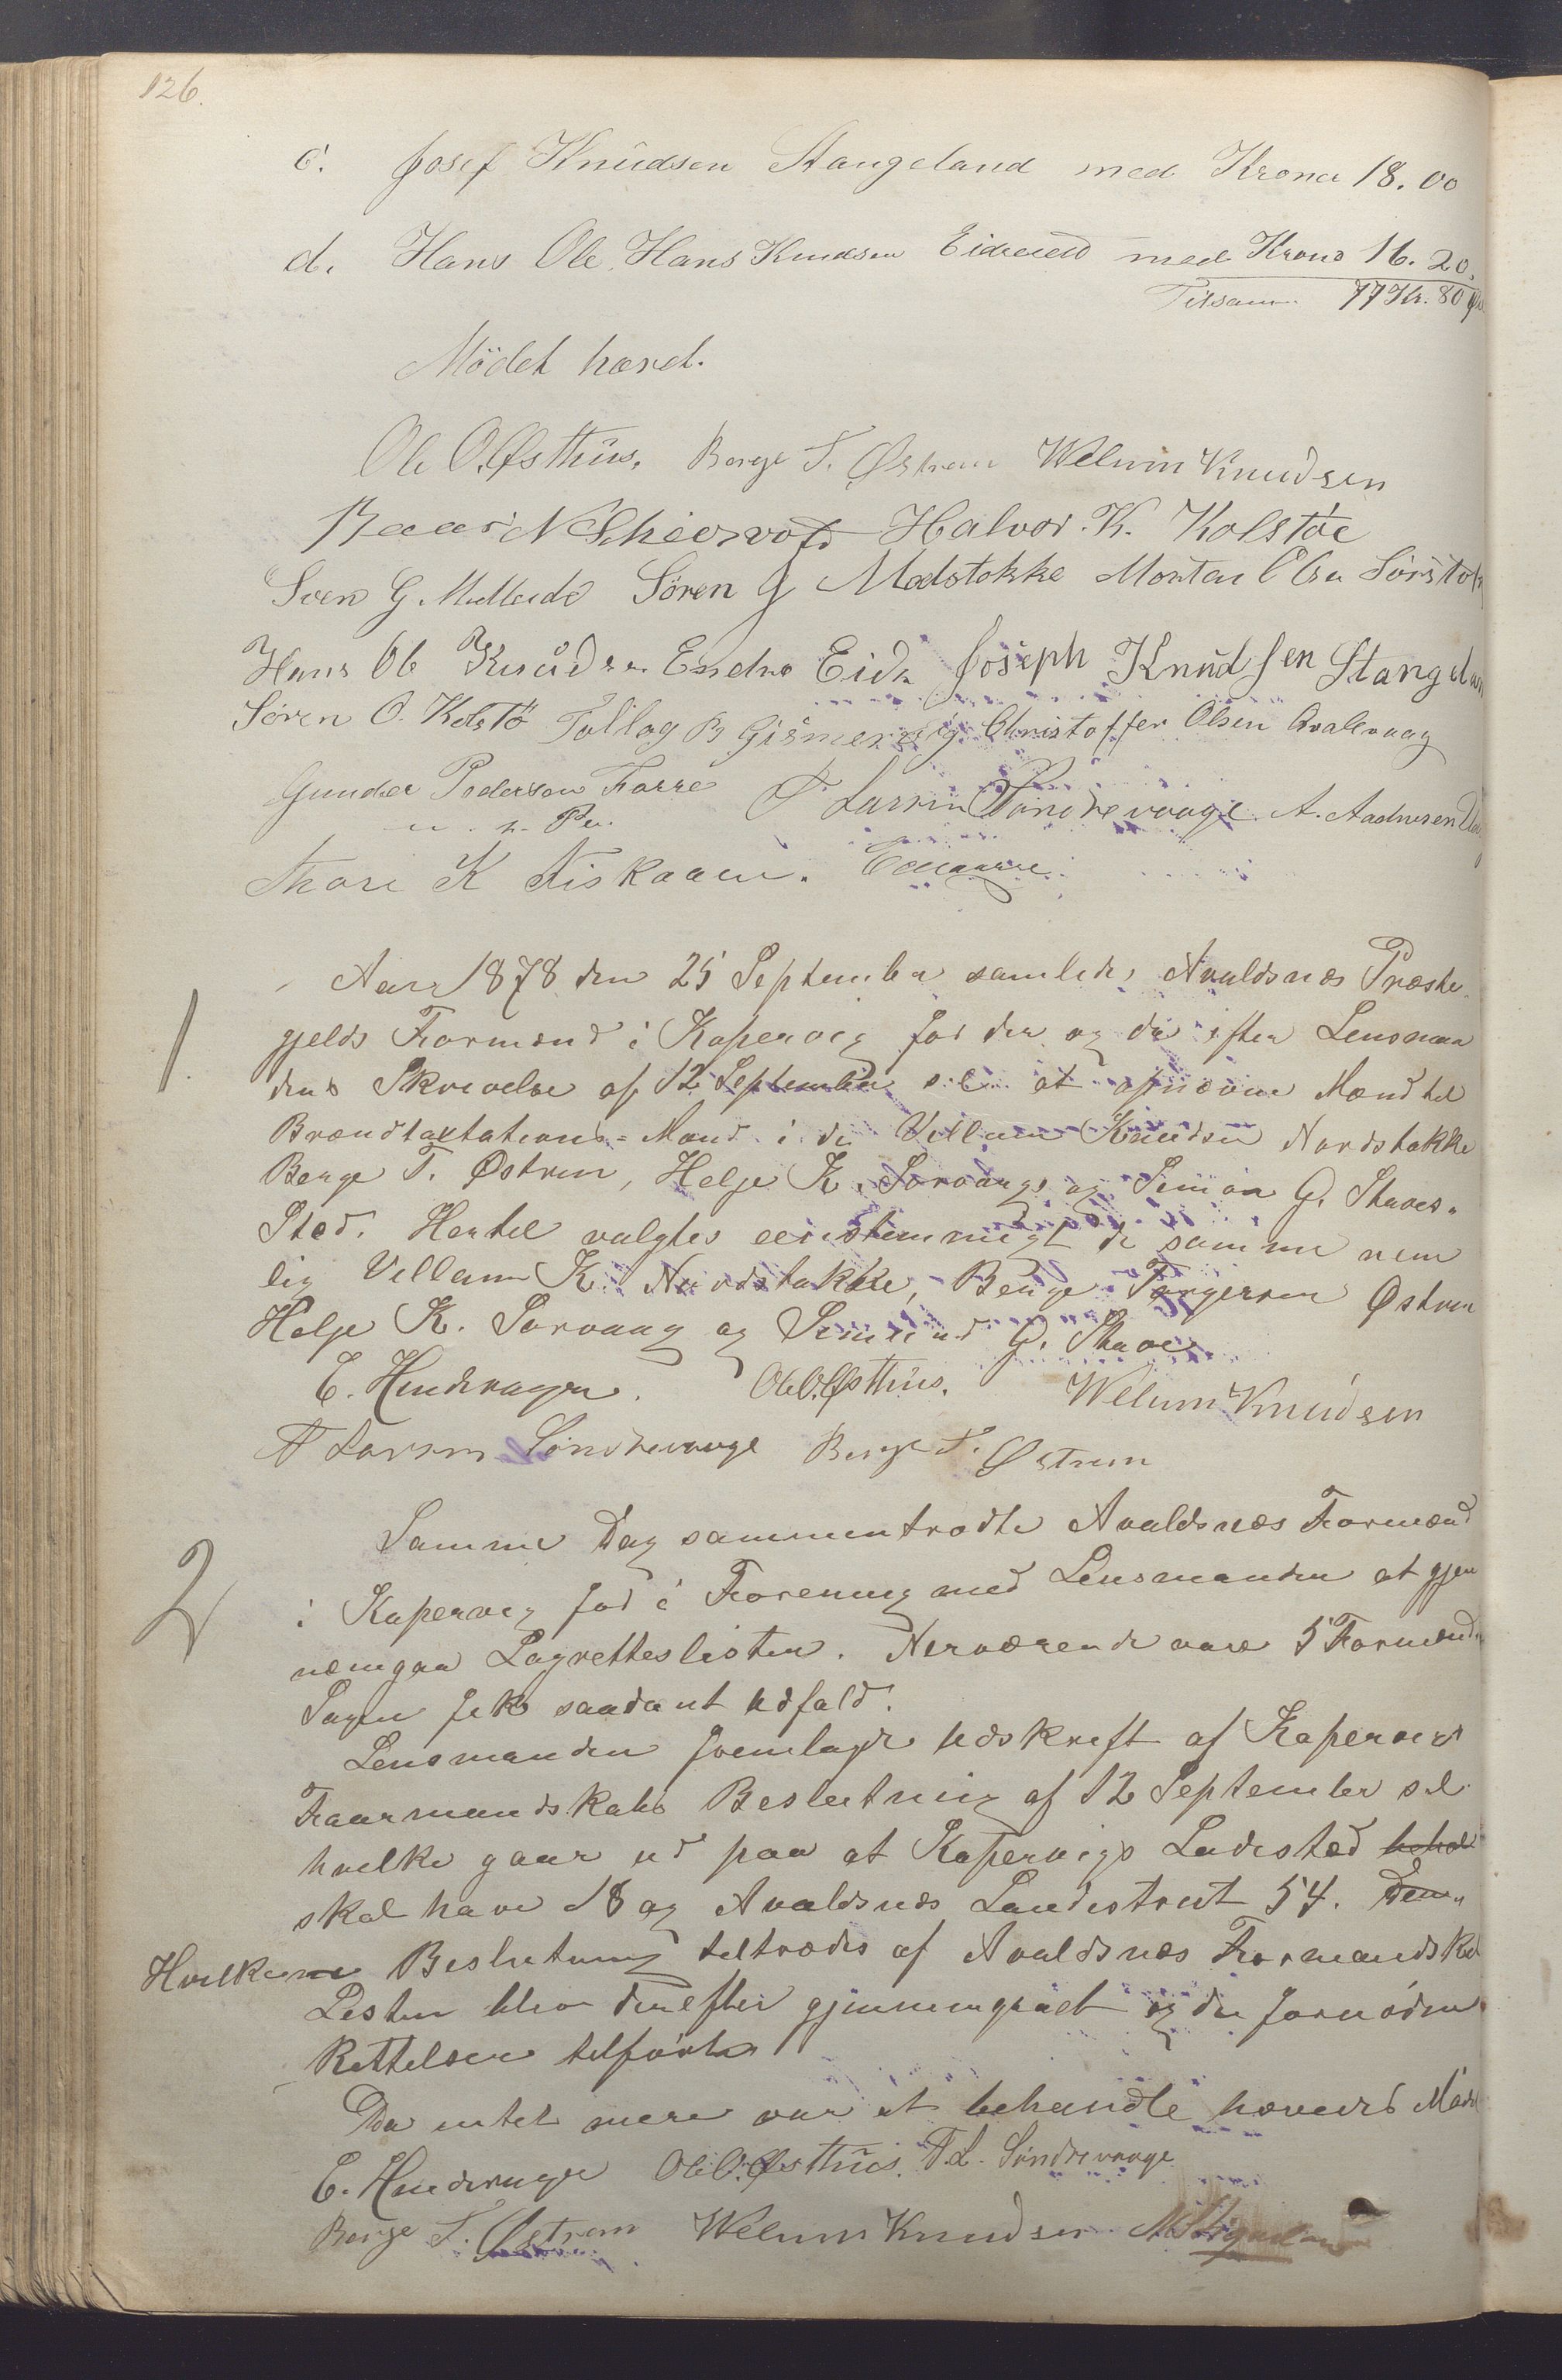 126.
c. Josef Knudsen Stangeland med Kroner 18.00
d. Hans Ole Hans Knudsen Eideeie med Krone 16.20.
Tilsam. 77 Kr. 80 Øre
Mödet hævet.
Ole O. Østhüs. Børge T. Østrem Welum Knudsen
N Skeiesvold Halvor. K. Kolstöe
Sven G. Søren G Medstokke Morten Olsen Sørstok
Hans Ole Knudsen Endre Eide Joseph Knudsen Stangelan
Søren O. Kolstö Tollag B Gismervig Christoffer Olsen Qvalevaag
Gunder Pedersen Farre T Larsen Søndrevaage A. Aadnesen
m. p. Pen.
Thore K Fiskaaen.
1.
Aar 1878 den 25 September samledes Avaldsnæs Præste
gjelds Formænd i Kopervig for der og da efter Lensman
dens Skrivelse af 12 September s. a. at opnævne Mænd til
Brandtaxtations-Mænd i de Villum Knudsen Nordstokke
Børge T. Østrem, Helje K. Sørvaags og Simon G. Staves
Sted. Hertil valgtes eenstemmigt de samme nem
lig Villum K. Nordstokke, Børge Torgersen Østrem
Helje K. Sørvaag og Simund G. Stave
E. Hinderager. Ole O. Østhüs. Welum Knudsen
T Larsen Søndrevaage Børge T. Østrem
2
Samme Dag sammentrædte Avaldsnæs Formænd
i Kopervig for i Forening med Lensmanden at gjen
nemgaa Lagretteslisten. Nerværende vare 5 Formænd
Sagen fik saadant Udfald.
Lensmanden fremlagde Udskrift af Kopervigs
Formandskabs Beslutning af 12 September s.a.
hvilke gaar ud paa at Kopervigs Ladested
skal have 18 og Avaldsnæs Landdistrict 54. Den
Hvilken Beslutning tiltrædes af Avaldsnæs Formandskab
Listen blev derefter gjennemgaaet og de fornødne
Rettelser tilførte
Da intet mere var at behandle hævedes Mødet
E. Hinderager Ole O. Østhüs. T. L. Søndrevaage
Børge T. Østrem Welum Knudsen